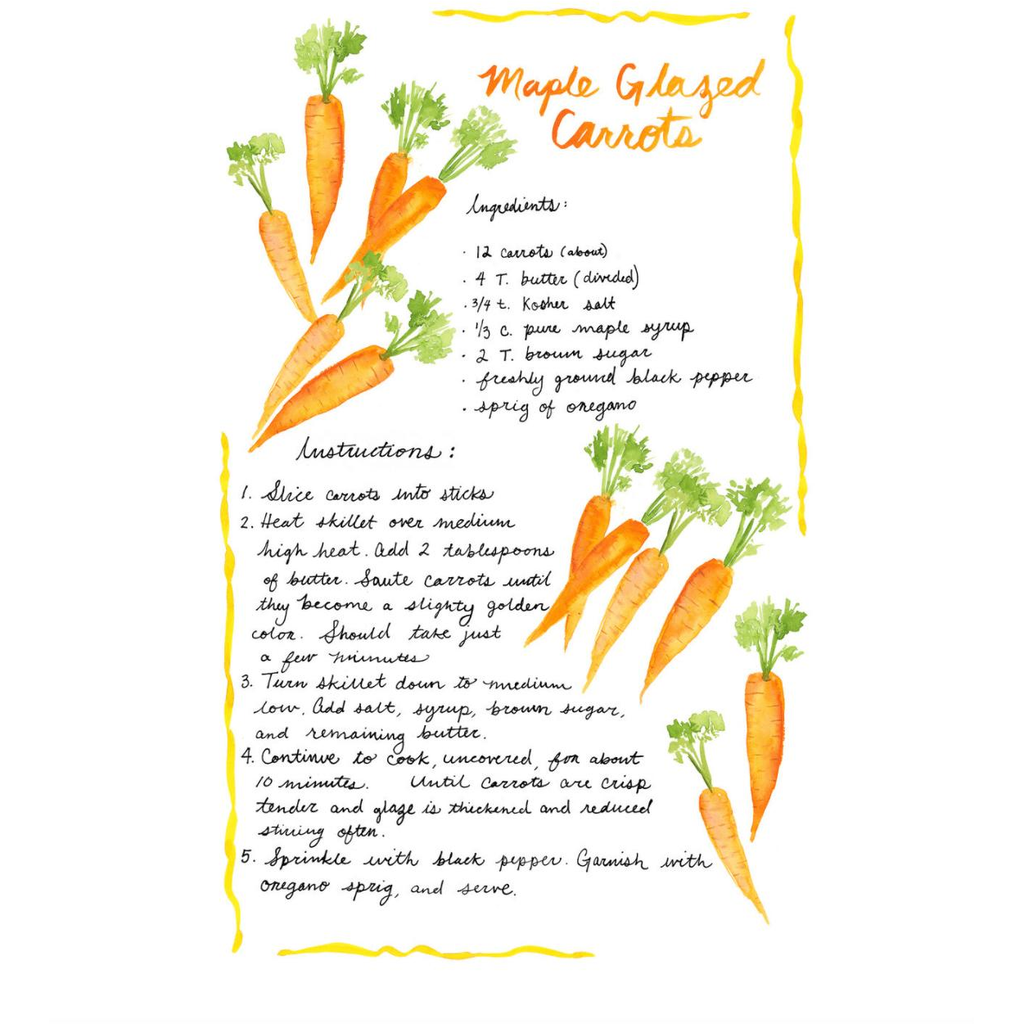 Maple Glazed
Carrots
Ingredients:
· 12 carrots (about)
· 4 T. butter (divided)
· 3/4 t. Kosher salt
· 1/3 c. pure maple syrup
· 2 T. brown sugar
· freshly ground black pepper
· sprig of oregano
Instructions:
1. Slice carrots into sticks
2. Heat skillet over medium
high heat. Add 2 tablespoons
of butter. Saute carrots until
they become a slighty golden
color. Should take just
a few minutes
3. Turn skillet down to medium
low. Add salt, syrup, brown sugar,
and remaining butter.
4. Continue to cook, uncovered, for about
10 minutes. Until carrots are crisp
tender and glaze is thickened and reduced
stirring often.
5. Sprinkle with black pepper. Garnish with
oregano sprig, and serve.